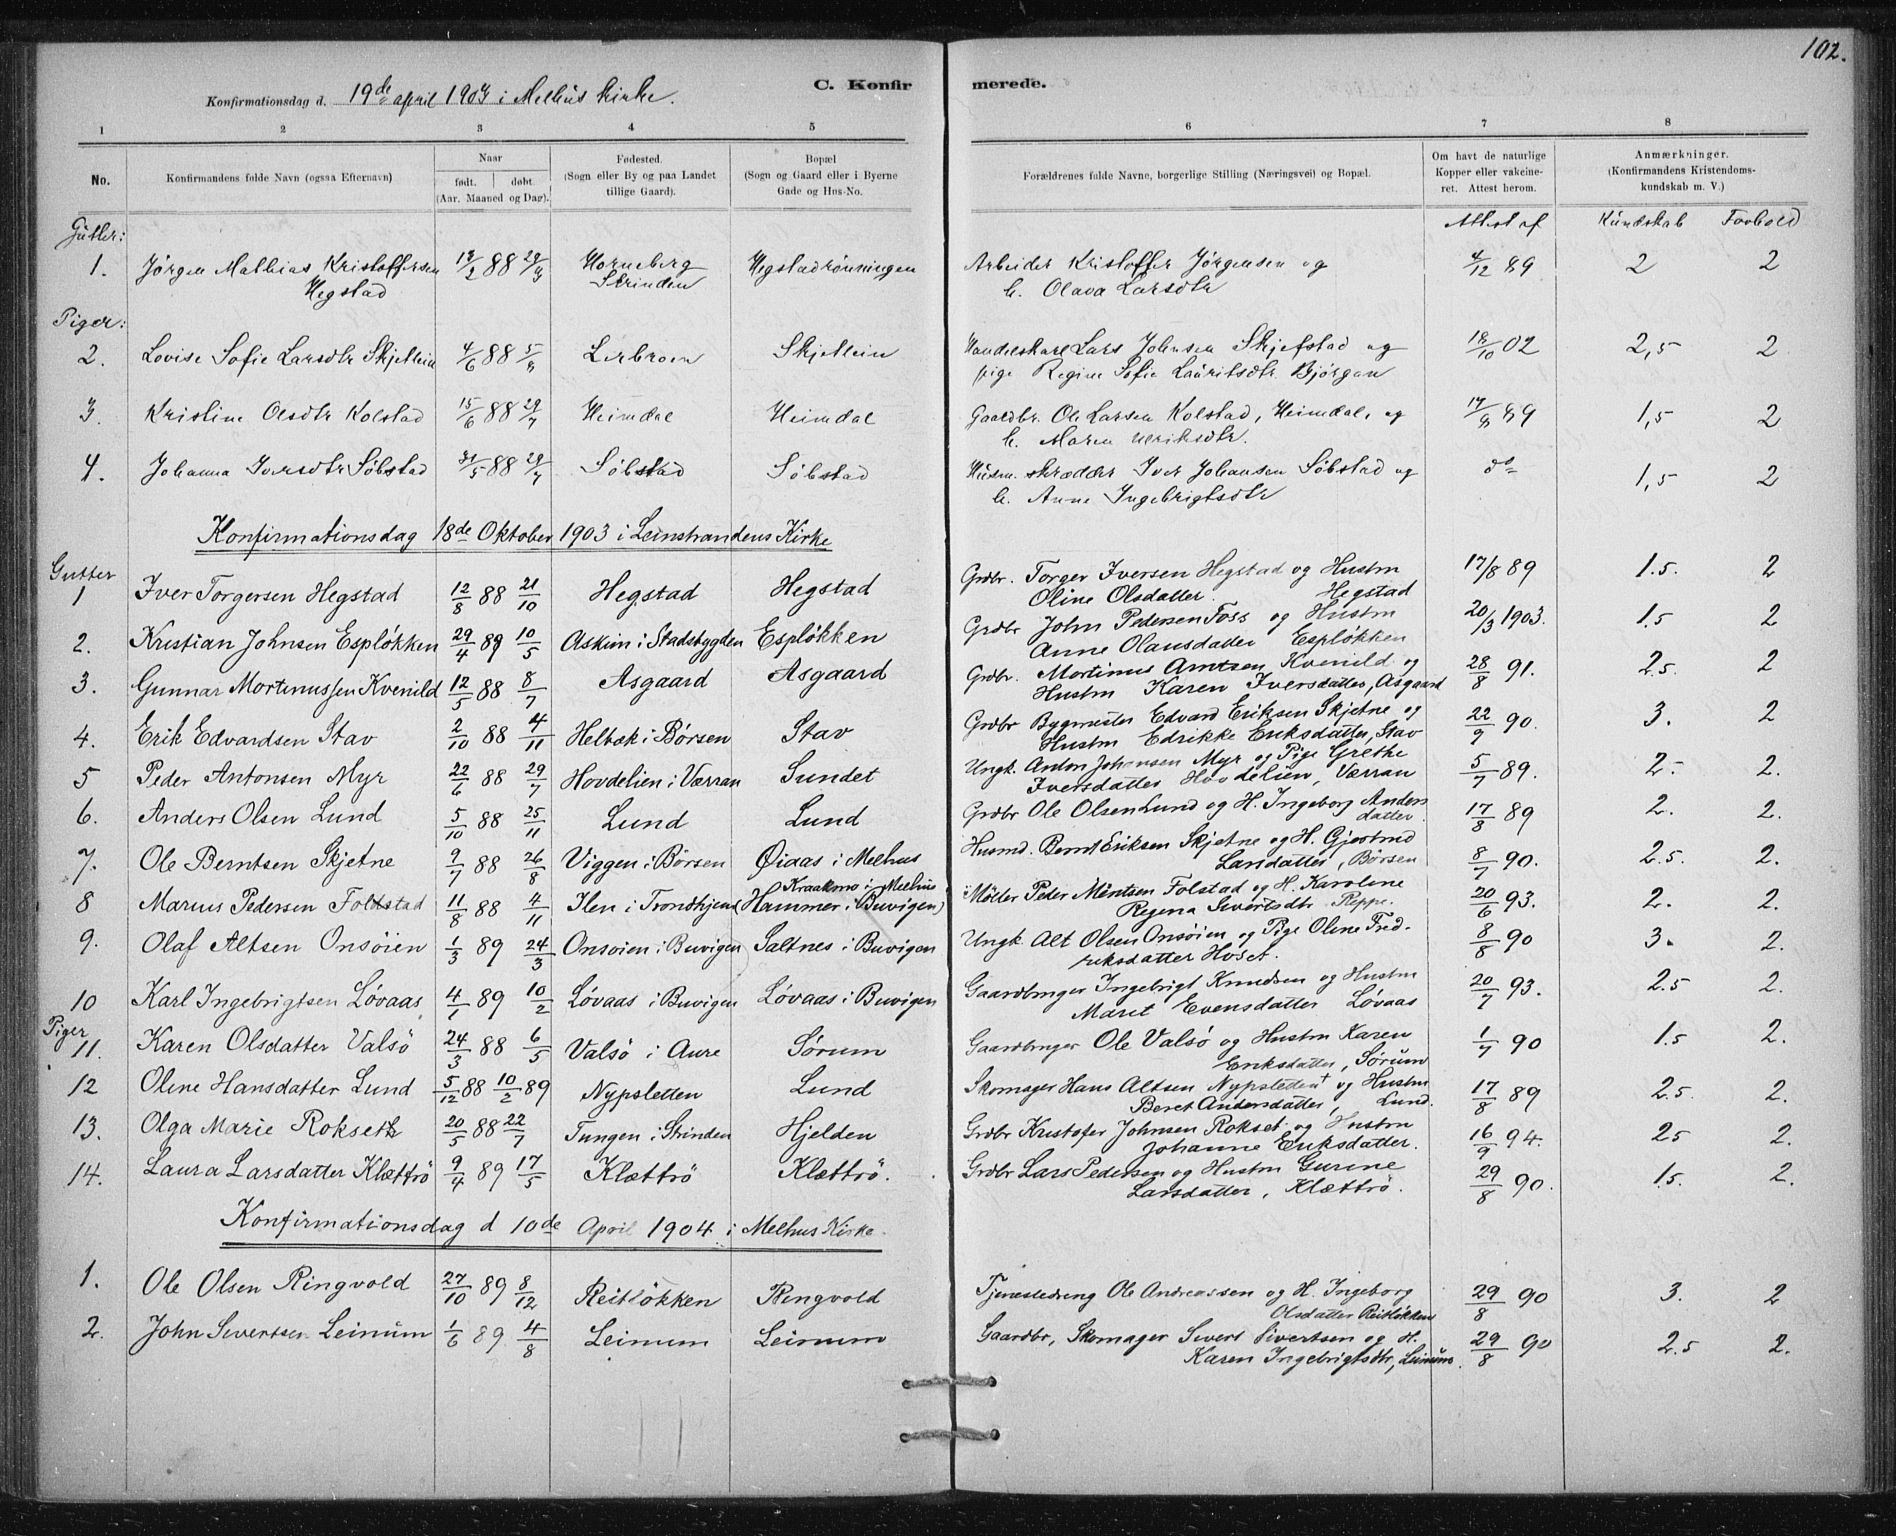 102.
C. Konfirmerede.
Konfirmationsdag d. 19de april 1903 i Melhus kirke.
1 2 3 4 5 6 7 8
No. Konfirmandens fulde Navn (ogsaa Efternavn) Naar født. døbt. (Aar. Maaned og Dag). Fødested. (Sogn eller By og paa Landet tillige Gaard). Bopæl (Sogn og Gaard eller i Byerne Gade og Hus-No. Forældrenes fulde Navne, borgerlige Stilling (Næringsvei) og Bopæl. Om havt de naturlige Kopper eller vakcineret. Attest herom. Anmærkninger. (Konfirmandens Kristendomskundskab m. V.)
Attest af Kundskab Forhold
Gutter:
1. Jörgen Mathias Kristoffersen Hegstad 88 Horneberg Strinden Hegstadrönningen Arbeider Kristoffer Jörgensen og h. Olava Larsdtr 4/12 89 2 2
Piger:
2. Lovise Sofie Larsdtr Skjetlein 4/6 88 5/8 Lerbroen Skjetlein Handelskarl Lars Johnsen Skjefstad og pige Regine Sofie Lauritsdtr. Bjørgan 18/10 02 2,5 2
3. Kristine Olsdtr Kolstad 15/6 88 29/7 Heimdal Heimdal Gaardbr. Ole Larsen Kolstad, Heimdal, og h. Maren Ulriksdtr. 17/8 89 1,5 2
4. Johanna Iversdtr Söbstad 31/5 88 29/7 Söbstad Söbstad Husm. skrædder Iver Johansen Söbstad og h. Anne Ingebrigtsdtr do 1,5 2
Konfirmationsdag 18de Oktober 1903 i Leinstrandens Kirke
Gutter
1 Iver Torgersen Hegstad 12/8 88 21/10 Hegstad Hegstad Grdbr. Torger Iversen Hegstad og Hustru Oline Olsdatter Hegstad 17/8 89 1.5. 2
2. Kristian Johnsen Espløkken 29/4 89 10/5 Askim i Stadsbygden Espløkken Grdbr John Pedersen Foss og Hustru Anne Olausdatter Espløkken 20/3 1903. 1.5 2
3. Gunnar Mortinussen Kvenild 12/5 88 8/7 Asgaard Asgaard Grdbr. Mortinus Arntsen Kvenild og Hustru Karen Iversdatter, Asgaard 28/8 91. 2.5. 2
4. Erik Edvardsen Stav 2/10 88 4/11 Heltbek i Børsen Stav Grdbr Bygmester Edvard Eriksen Skjetne og Hustru Edrikke Eriksdatter, Stav 22/9 90. 3. 2
5 Peder Antonsen Myr 22/6 88 29/7 Hovdelien i Værran Sundet Ungk. Anton Johansen Myr og Pige Grethe Iversdatter Hovdelien, Værran 5/7 89. 2- 2.
6. Anders Olsen Lund 5/10 88 25/11 Lund Lund Grdbr Ole Olsen Lund og H. Ingeborg Andersdatter 17/8 89 2. 2.
7. Ole Berntsen Skjetne 9/7 88 26/8 Viggen i Børsen Øiaas i Melhus Husmd. Bernt Eriksen Skjetne og H. Gjertrud Larsdatter, Børsen 8/7 90. 2.5. 2.
8 Marius Pedersen Folstad 11/8 88 4/11 Ilen i Trondhjem Kraakmo i Melhus (Hammer i Buvigen) Møller Peder Mentsen Folstad og H. Karoline Regina Sivertsdtr Reppe. 20/6 93. 2. 2.
9. Olaf Altsen Onsöien 1/3 89 24/3 Onsoien i Buvigen Saltnes i Buvigen Ungk. Alt Olsen Onsöien og Pige Oline Fredriksdatter Hoset. 8/8 90 3. 2.
10 Karl Ingebrigtsen Løvaas 4/1 89 10/2 Løvaas i Buvigen Løvaas i Buvigen Gaardbruger Ingebrigt Knudsen og Hustru Maret Evensdatter Løvaas 20/7 93. 2.5 2.
Piger
11. Karen Olsdatter Valsö 24/3 88 6/5 Valsö i Aure Sørum Gaardbruger Ole Valsö og Hustru Karen Eriksdatter, Sørum 1/7 90 1.5 2.
12 Oline Hansdatter Lund 5/12 88 10/2 89 Nypsletten Lund Skomager Hans Altsen Nypsletten + og Hustru Beret Andersdatter, Lund. 17/8 89 2.5. 2.
13. Olga Marie Rokseth 20/5 88 22/7 Tungen i Strinden Hjelden Grdbr Kristofer Johnsen Rokset og Hustru Johanne Eriksdatter. 16/9 94. 25 2.
14. Laura Larsdatter Klættrö 9/4 89 17/5 Klættrö Klættrö. Grdbr Lars Pedersen og Hustru Gurine Larsdatter, Klættrö. 29/8 90. 1.5. 2.
Konfirmationsdag d 10de April 1904 i Melhus Kirke
1. Ole Olsen Ringvold 27/10 89 8/12 Reitløkken Ringvold Tjenestedreng Ole Andreassen og H. Ingeborg Olsdatter Reitløkken 29/8 90 3. 2
2. John Sivertsen Leinum 1/6 89 4/8 Leinum Leinum Gaardbr, Skomager Sivert Sivertsen og H. Karen Ingebrigtsdtr, Leinum. 29/8 90 2.5 2.